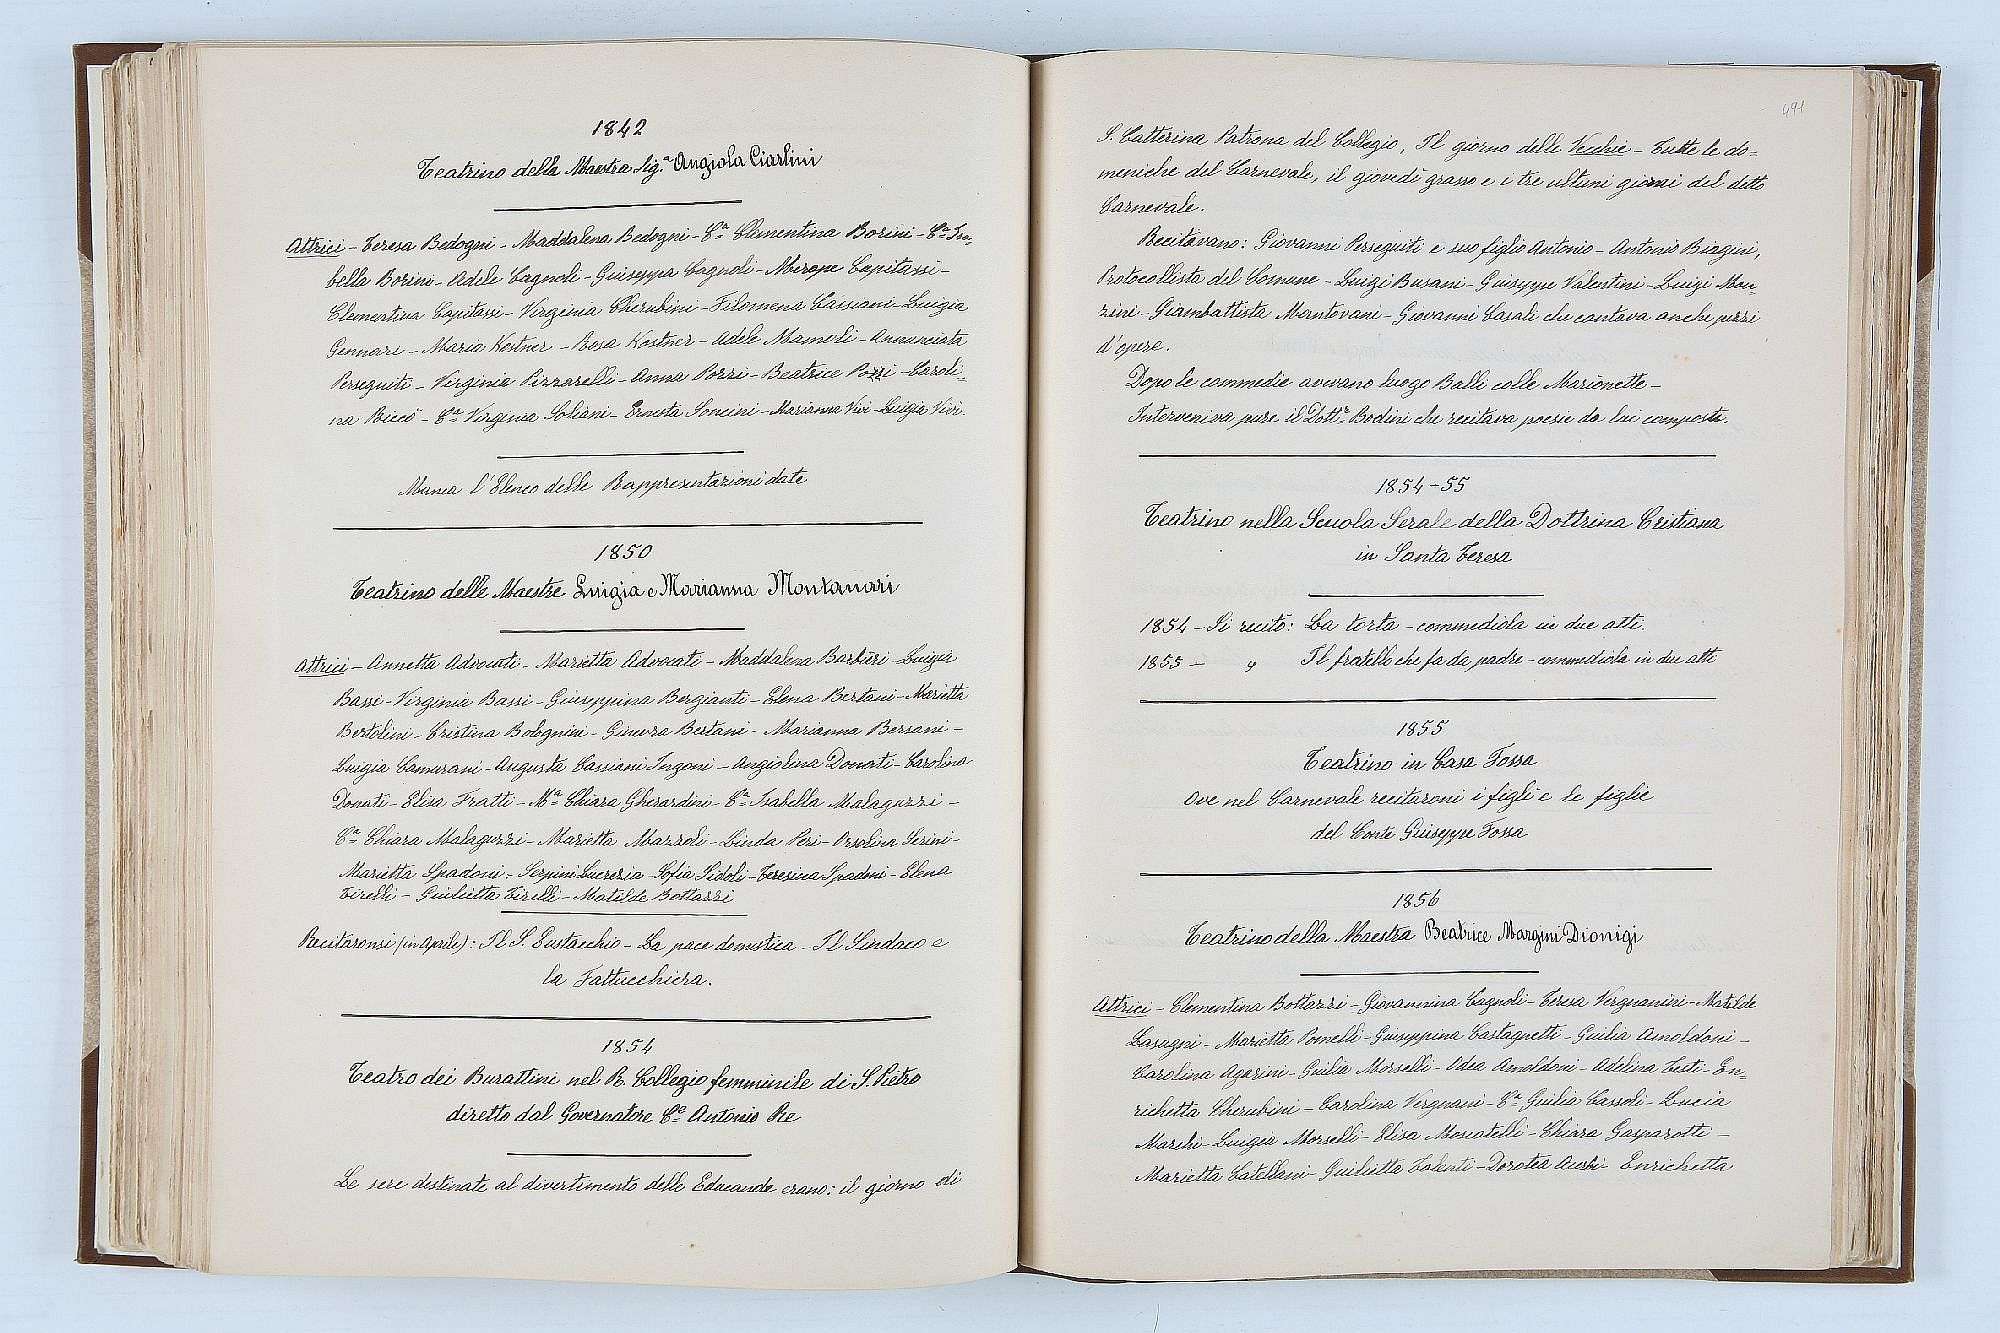 1842
Teatrino della Maestra Sig.ª Angiola Ciarlini
Attrici - Teresa Bedogni - Maddalena Bedogni - C.ª Clementina Borini - C.ª Isa-
bella Borini - Adele Cagnoli - Giuseppa Cagnoli - Merope Capitassi -
Clementina Capitassi - Virginia Cherubini - Filomena Cassiani - Luigia
Gennari - Maria Kostner - Rosa Kostner - Adele Mameli - Annunciata
Perseguiti - Virginia Pizzarelli - Anna Pozzi - Beatrice Pozzi - Caroli-
na Riccò - C.ª Virginia Soliani - Ernesta Soncini - Marianna Vivi - Luigia Vivi.
Manca l'Elenco delle Rappresentazioni date
1850
Teatrino delle Maestre Luigia e Marianna Montanari
Attrici - Annetta Advocati - Marietta Advocati - Maddalena Barbieri - Luigia
Bassi - Virginia Bassi - Giuseppina Bergianti - Elena Bertani - Marietta
Bertolini - Cristina Bolognini - Ginevra Bertani - Marianna Bersani -
Luigia Camurani - Augusta Cassiani Ingoni - Angiolina Donati - Carolina
Donati - Elisa Fratti - M.ª Chiara Gherardini - C.ª Isabella Malaguzzi -
C.ª Chiara Malaguzzi - Marietta Mazzoli - Linda Peri - Orsolina Serini -
Marietta Spadoni - Serpini Lucrezia - Sofia Sidoli - Teresina Spadoni - Elena
Tirelli - Giulietta Tirelli - Matilde Bottazzi
Recitaronsi (in Aprile): Il S. Eustacchio - La pace domestica - Il Sindaco e
la Fattucchiera.
1854
Teatro dei Burattini nel R. Collegio femminile di S. Pietro
diretto dal Governatore C.e Antonio Re
Le sere destinate al divertimento delle Educande erano: il giorno di
491
S. Catterina Patrona del Collegio, Il giorno delle Vecchie - Tutte le do-
meniche del Carnevale, il giovedì grasso e i tre ultimi giorni del detto
Carnevale.
Recitavano: Giovanni Perseguiti e suo figlio Antonio - Antonio Biagini,
Protocollista del Comune - Luigi Busani - Giuseppe Valentini - Luigi Man-
zini - Giambattista Mantovani - Giovanni Casali che cantava anche pezzi
d'opere.
Dopo le commedie avevano luogo Balli colle Marionette -
Interveniva pure il Dott.r Bodini che recitava poesie da lui composte.
1854-55
Teatrino nella Scuola Serale della Dottrina Cristiana
in Santa Teresa
1854 - Si recitò: La torta - commediola in due atti.
1855 - " Il fratello che fa da padre - commediola in due atti
1855
Teatrino in Casa Fossa
Ove nel Carnevale recitaroni i figli e le figlie
del Conte Giuseppe Fossa
1856
Teatrino della Maestra Beatrice Margini Dionigi
Attrici - Clementina Bottazzi - Giovannina Cagnoli - Teresa Vergnanini - Matilde
Lasagni - Marietta Pomelli - Giuseppina Castagnetti - Giulia Arnoldoni -
Carolina Agarini - Giulia Morselli - Ada Arnoldoni - Adelina Testi - En-
richetta Cherubini - Carolina Vergnani - C.ª Giulia Cassoli - Lucia
Marchi - Luigia Morselli - Elisa Moscatelli - Chiara Gasparotti -
Marietta Catellani - Giulietta Talenti - Dorotea Enrichetta